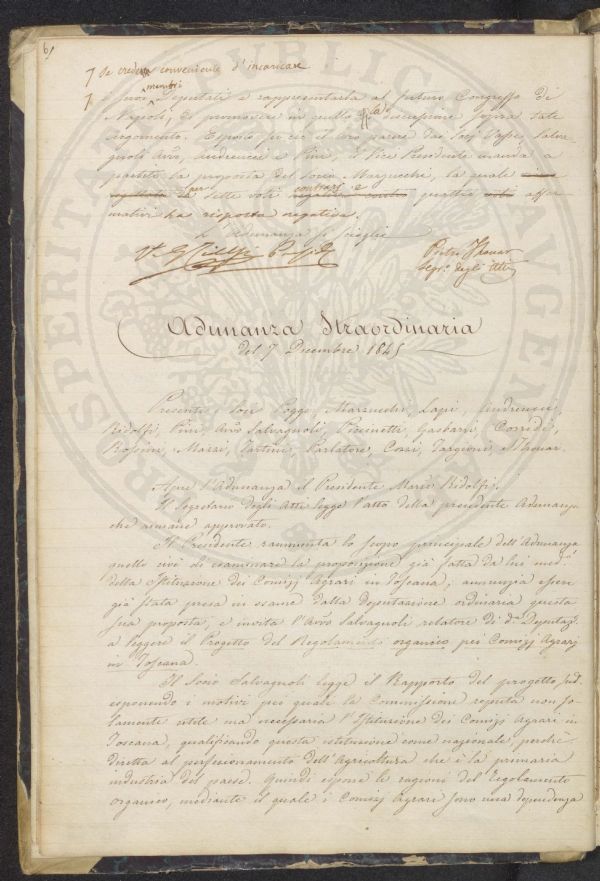 6/
7 Se creda conveniente d'incaricare
7 i suoi membri deputati a rappresentarla al futuro Congresso di
Napoli, di promovere in quello ffta discussione sopra tale
argomento. Esposto su ciò il loro parere dai Socj Poggi, Salva
gnoli Avvo, Andreucci e Pini, il Vice Presidente manda a
partito la proposta del Socio Marzucchi, la quale
per sette voti contrarj e quattro affer
mativi ha risposta negativa.
L'Adunanza si scioglie
V. C. Ridolfi Presid
Pietro Thouar
Segr. degli Atti
Adunanza Straordinaria
del 7 Decembre 1845
Presenti i Socj Poggi, Marzucchi, Lapi, Andreucci,
Ridolfi, Pini, Avvo Salvagnoli, Piccinetti, Gasbarri, Corridi,
Rossini, Marzi, Tartini, Parlatore, Cozzi, Targioni, Thouar.
Apre l'Adunanza il Presidente March. Ridolfi.
Il Segretario degli Atti legge l'atto della precedente Adunanza
che rimane approvato.
Il Presidente rammenta lo scopo principale dell'Adunanza,
quello cioè di esaminare la proposizione già fatta da lui med.
della Istituzione dei Comizj Agrari in Toscana; annunzia essere
già stata presa in esame dalla Deputazione ordinaria questa
sua proposta, e invita l'Avvo Salvagnoli relatore di da Deputaz.
a leggere il Progetto del Regolamento organico pei Comizj Agrarj
in Toscana.
Il Socio Salvagnoli legge il Rapporto del progetto sud.
esponendo i motivi pei quale la Commissione reputa non so-
lamente utile ma necessaria l'Istituzione dei Comizj Agrari in
Toscana, qualificando questa istituzione come nazionale perchè
diretta al perfezionamento dell'Agricoltura che è la primaria
industria del paese. Quindi espone le ragioni del Regolamento
organico, mediante il quale i Comizj Agrari sono una dependenza